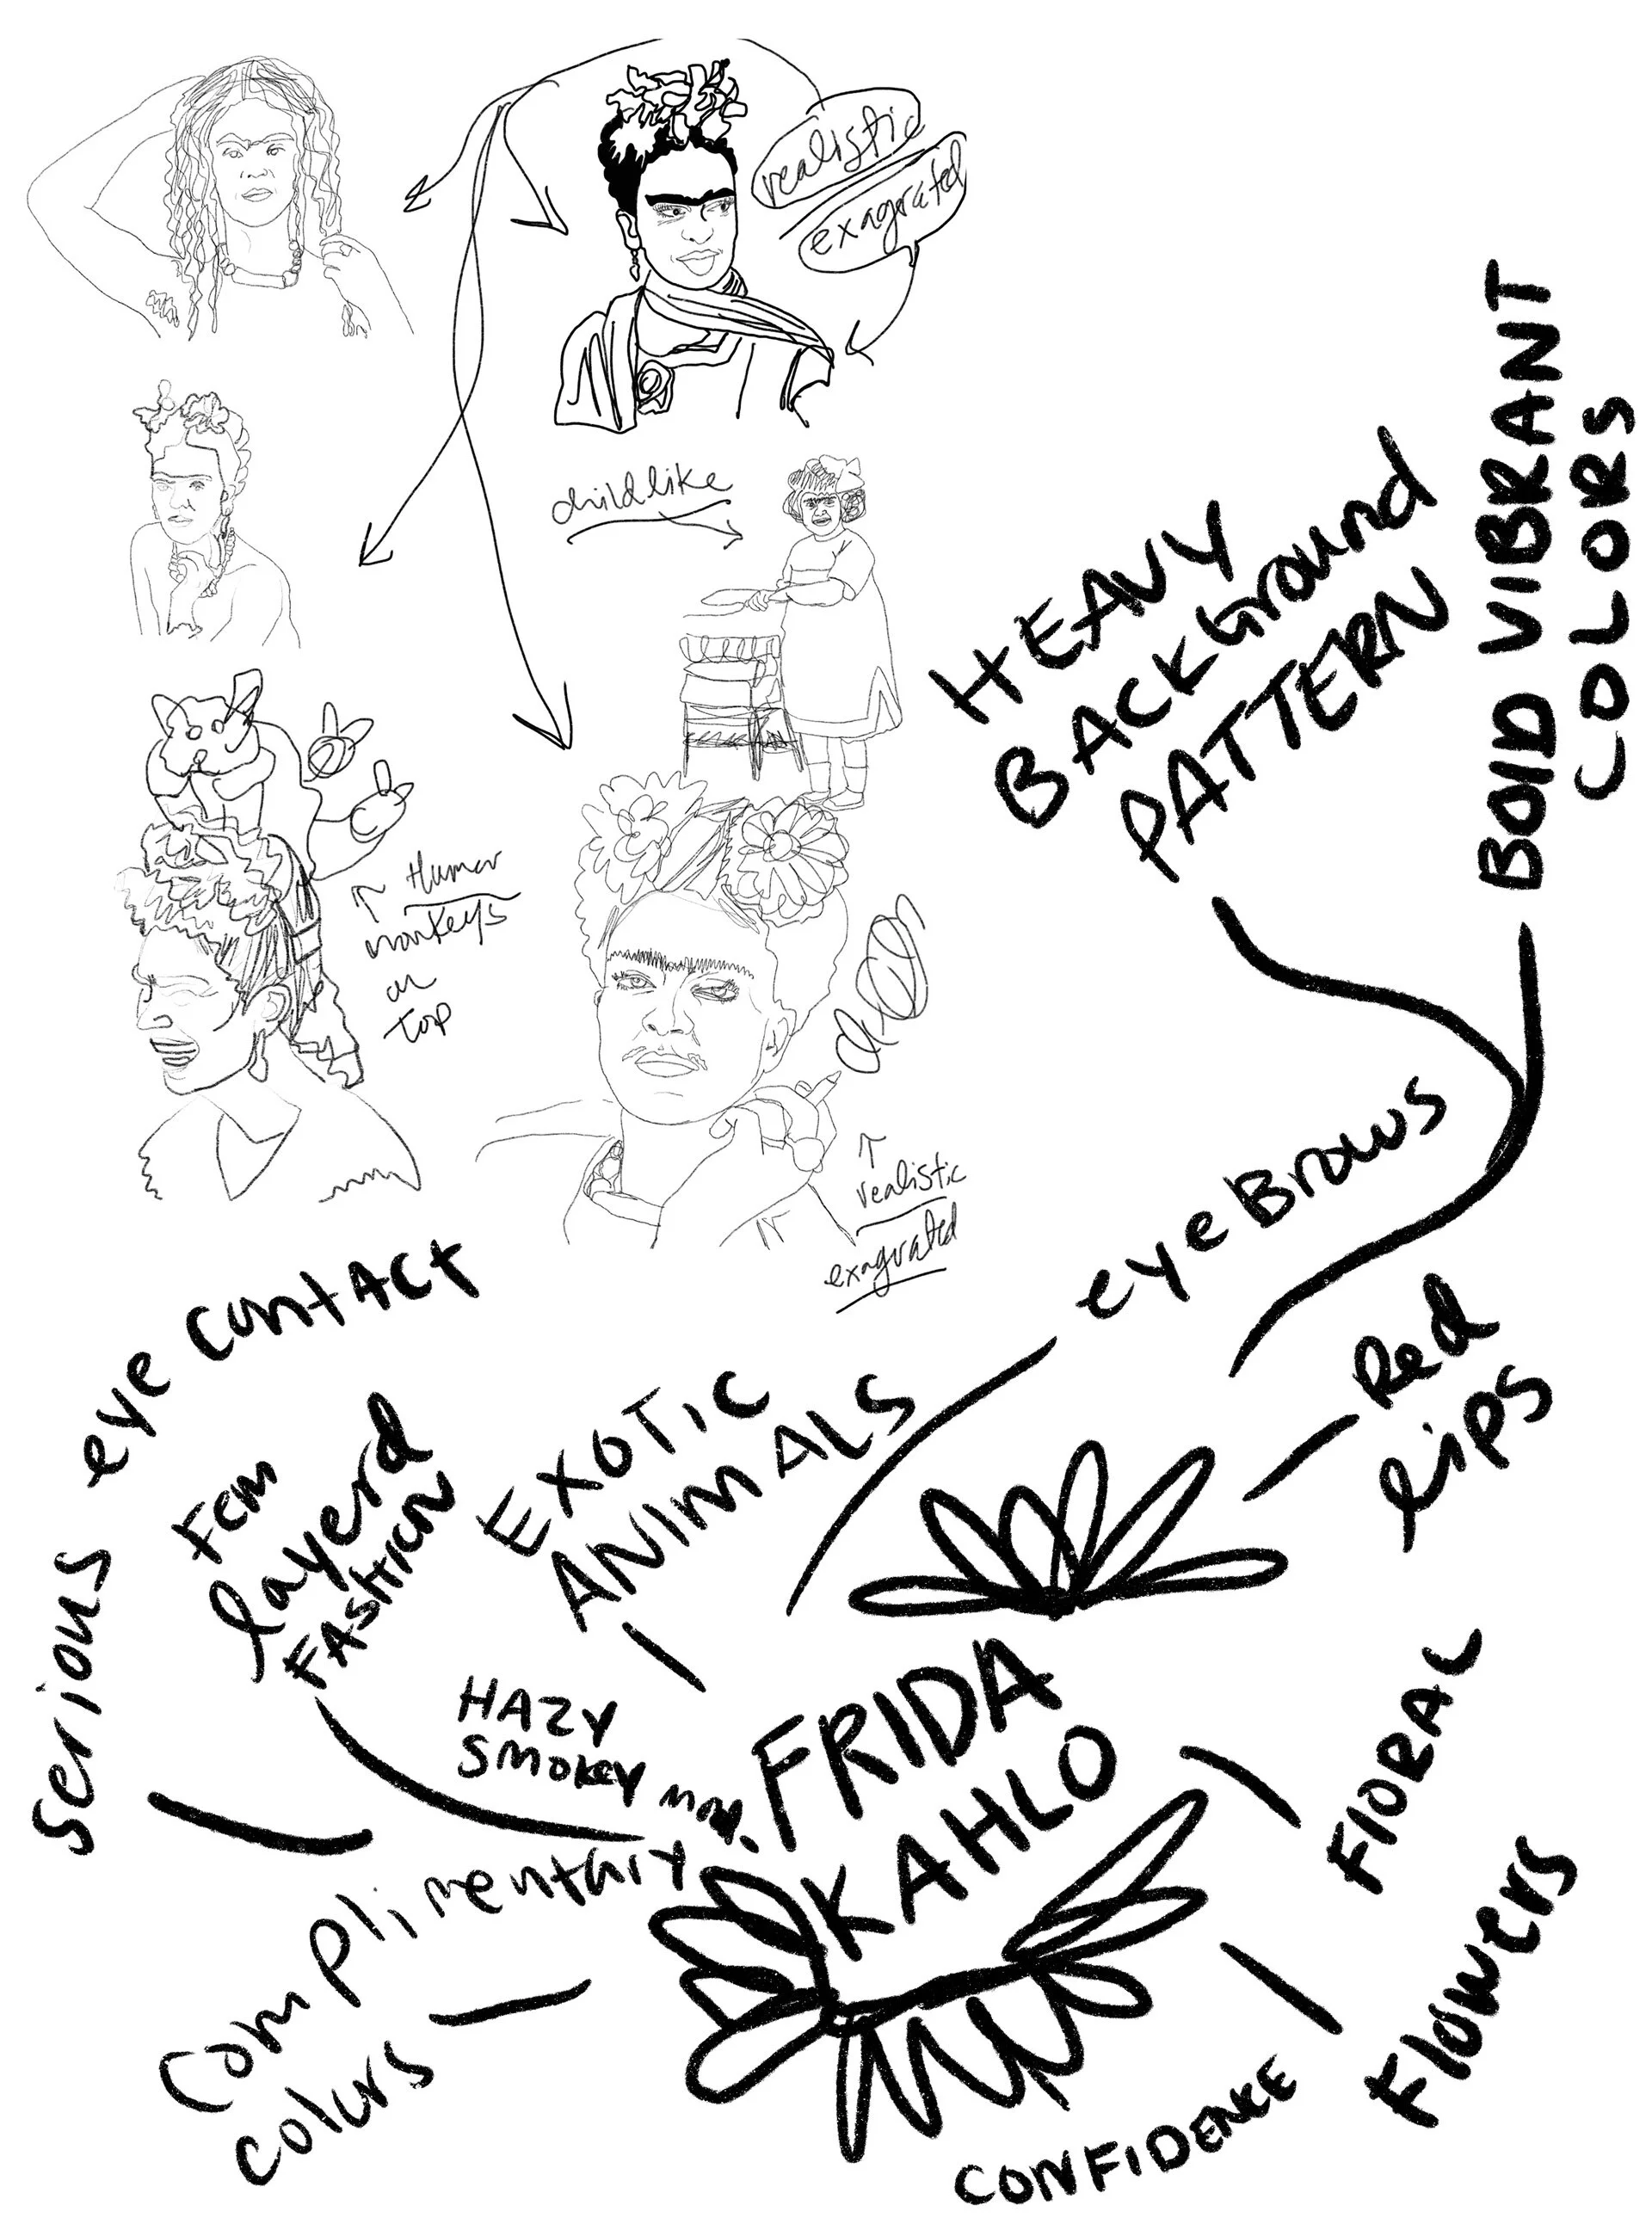 realistic
exagrated
childlike
Humor
monkeys
on
top
realistic
exagrated
HEAVY
BACKGround
PATTERN
BOlD VIBRANT
COLORS
eyeBrows
Red
Lips
eye contact
serious
Fem
layerd
FASHION
EXOTIC
ANIMALS
HAZY
SMOKEY
FRIDA
KAHLO
Complimentary
colors
FlORAL
Flowers
CONFIDENCE